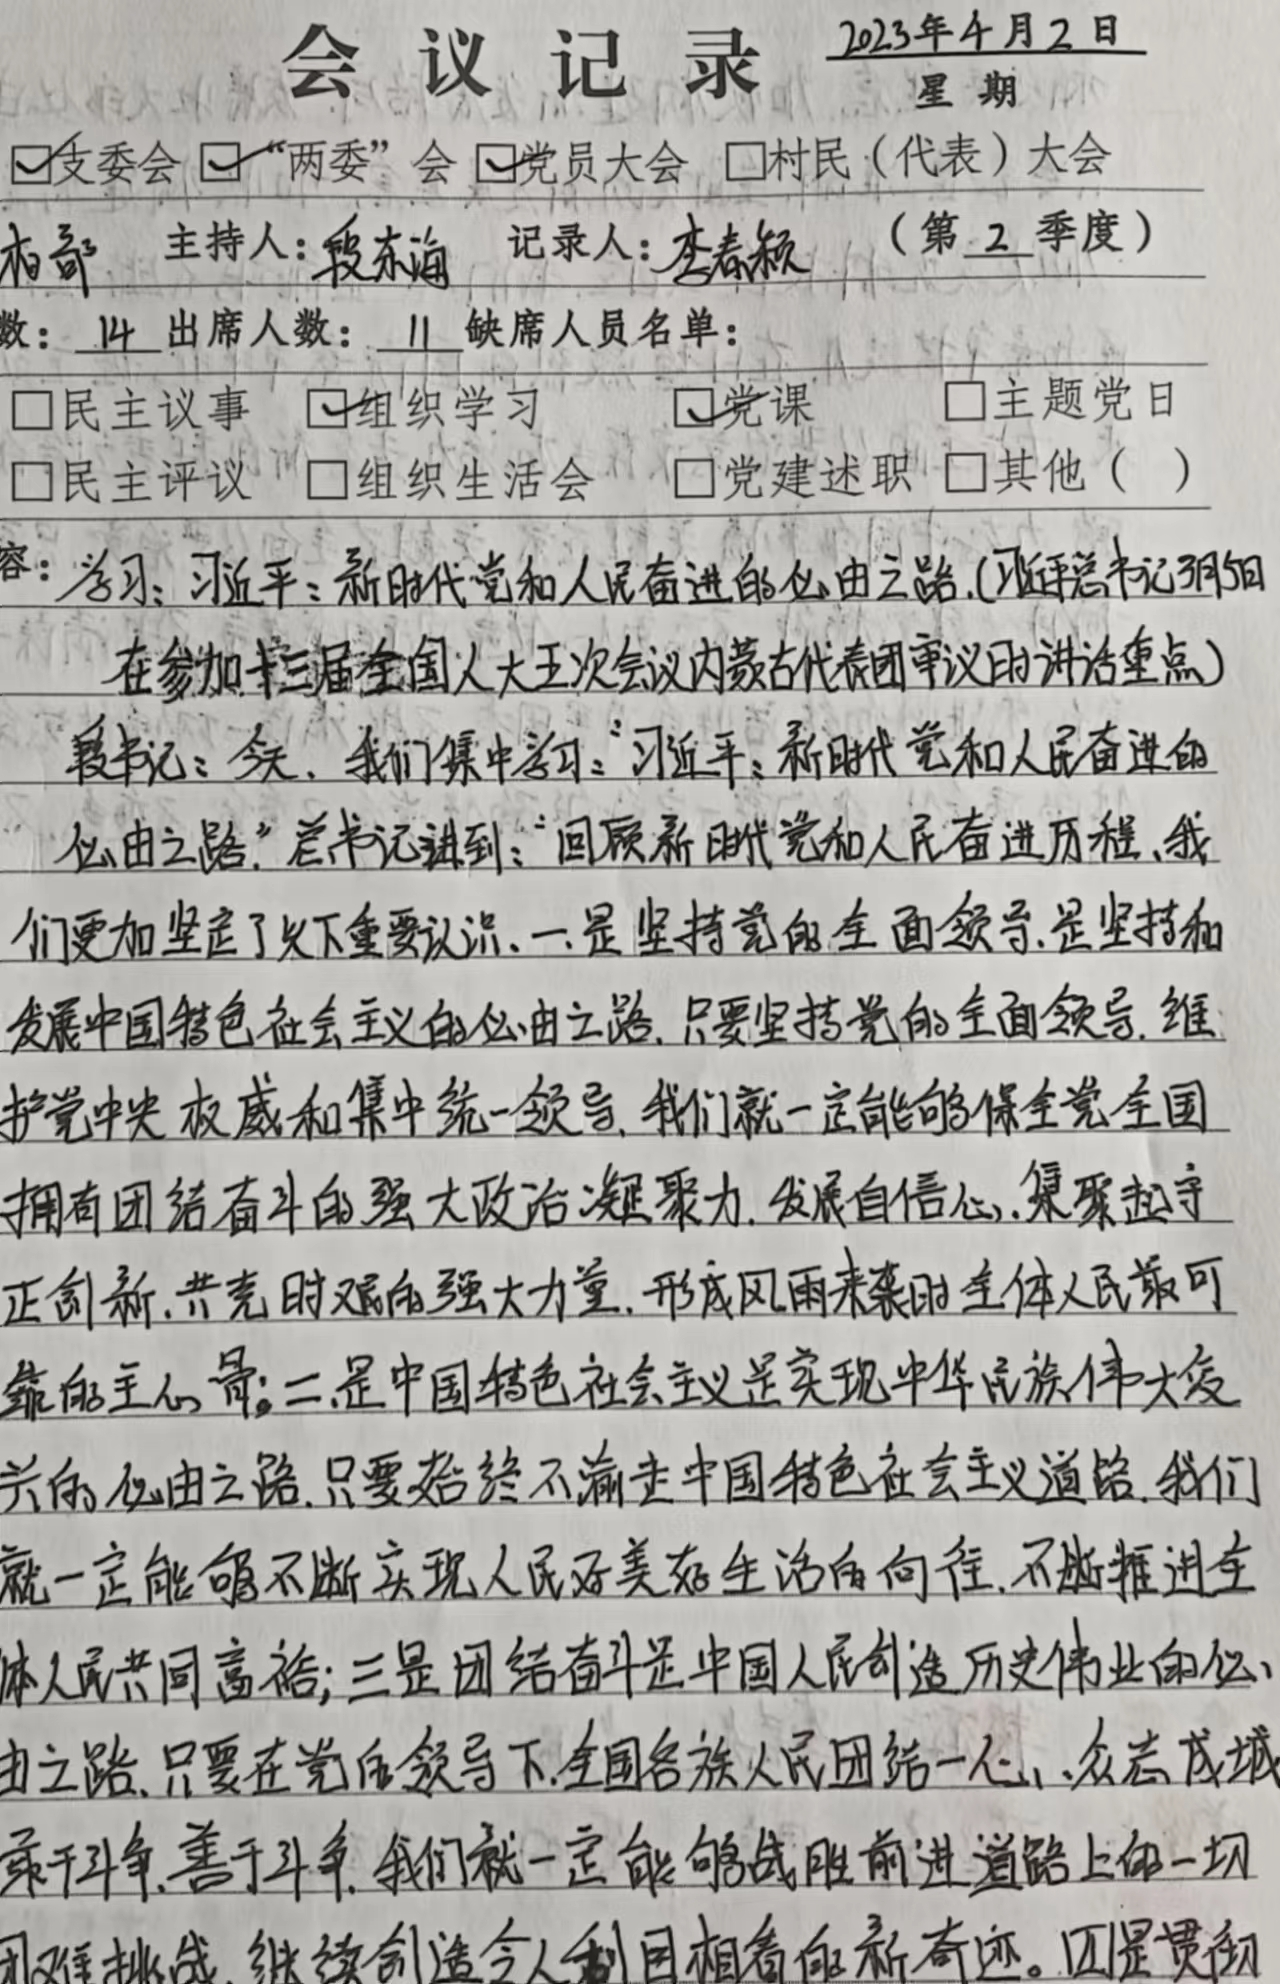 会议记录 2023年4月2日
星期
☑支委会 ☑“两委”会 ☑党员大会 □村民（代表）大会
部 主持人：段东海 记录人：李春颖 （第2季度）
数：14 出席人数：11 缺席人员名单：
□民主议事 ☑组织学习 ☑党课 □主题党日
□民主评议 □组织生活会 □党建述职 □其他（ ）
容：学习：习近平：新时代党和人民奋进的必由之路.(习近平总书记3月5日
在参加十三届全国人大五次会议内蒙古代表团审议时讲话重点)
段书记：今天、我们集中学习：“习近平：新时代党和人民奋进的
必由之路.”总书记讲到：“回顾新时代党和人民奋进历程、我
们更加坚定了以下重要认识、一、是坚持党的全面领导.是坚持和
发展中国特色社会主义的必由之路.只要坚持党的全面领导.维
护党中央权威和集中统一领导.我们就一定能够保全党全国
拥有团结奋斗的强大政治凝聚力.发展自信心、集聚起守
正创新.共克时艰的强大力量.形成风雨来袭时全体人民最可
靠的主心骨；二.是中国特色社会主义是实现中华民族伟大复
兴的必由之路.只要始终不渝走中国特色社会主义道路.我们
就一定能够不断实现人民对美好生活的向往.不断推进全
体人民共同富裕；三是团结奋斗是中国人民创造历史伟业的必
由之路.只要在党的领导下.全国各族人民团结一心、众志成城
敢于斗争.善于斗争.我们就一定能够战胜前进道路上的一切
困难挑战.继续创造令人刮目相看的新奇迹。四是贯彻